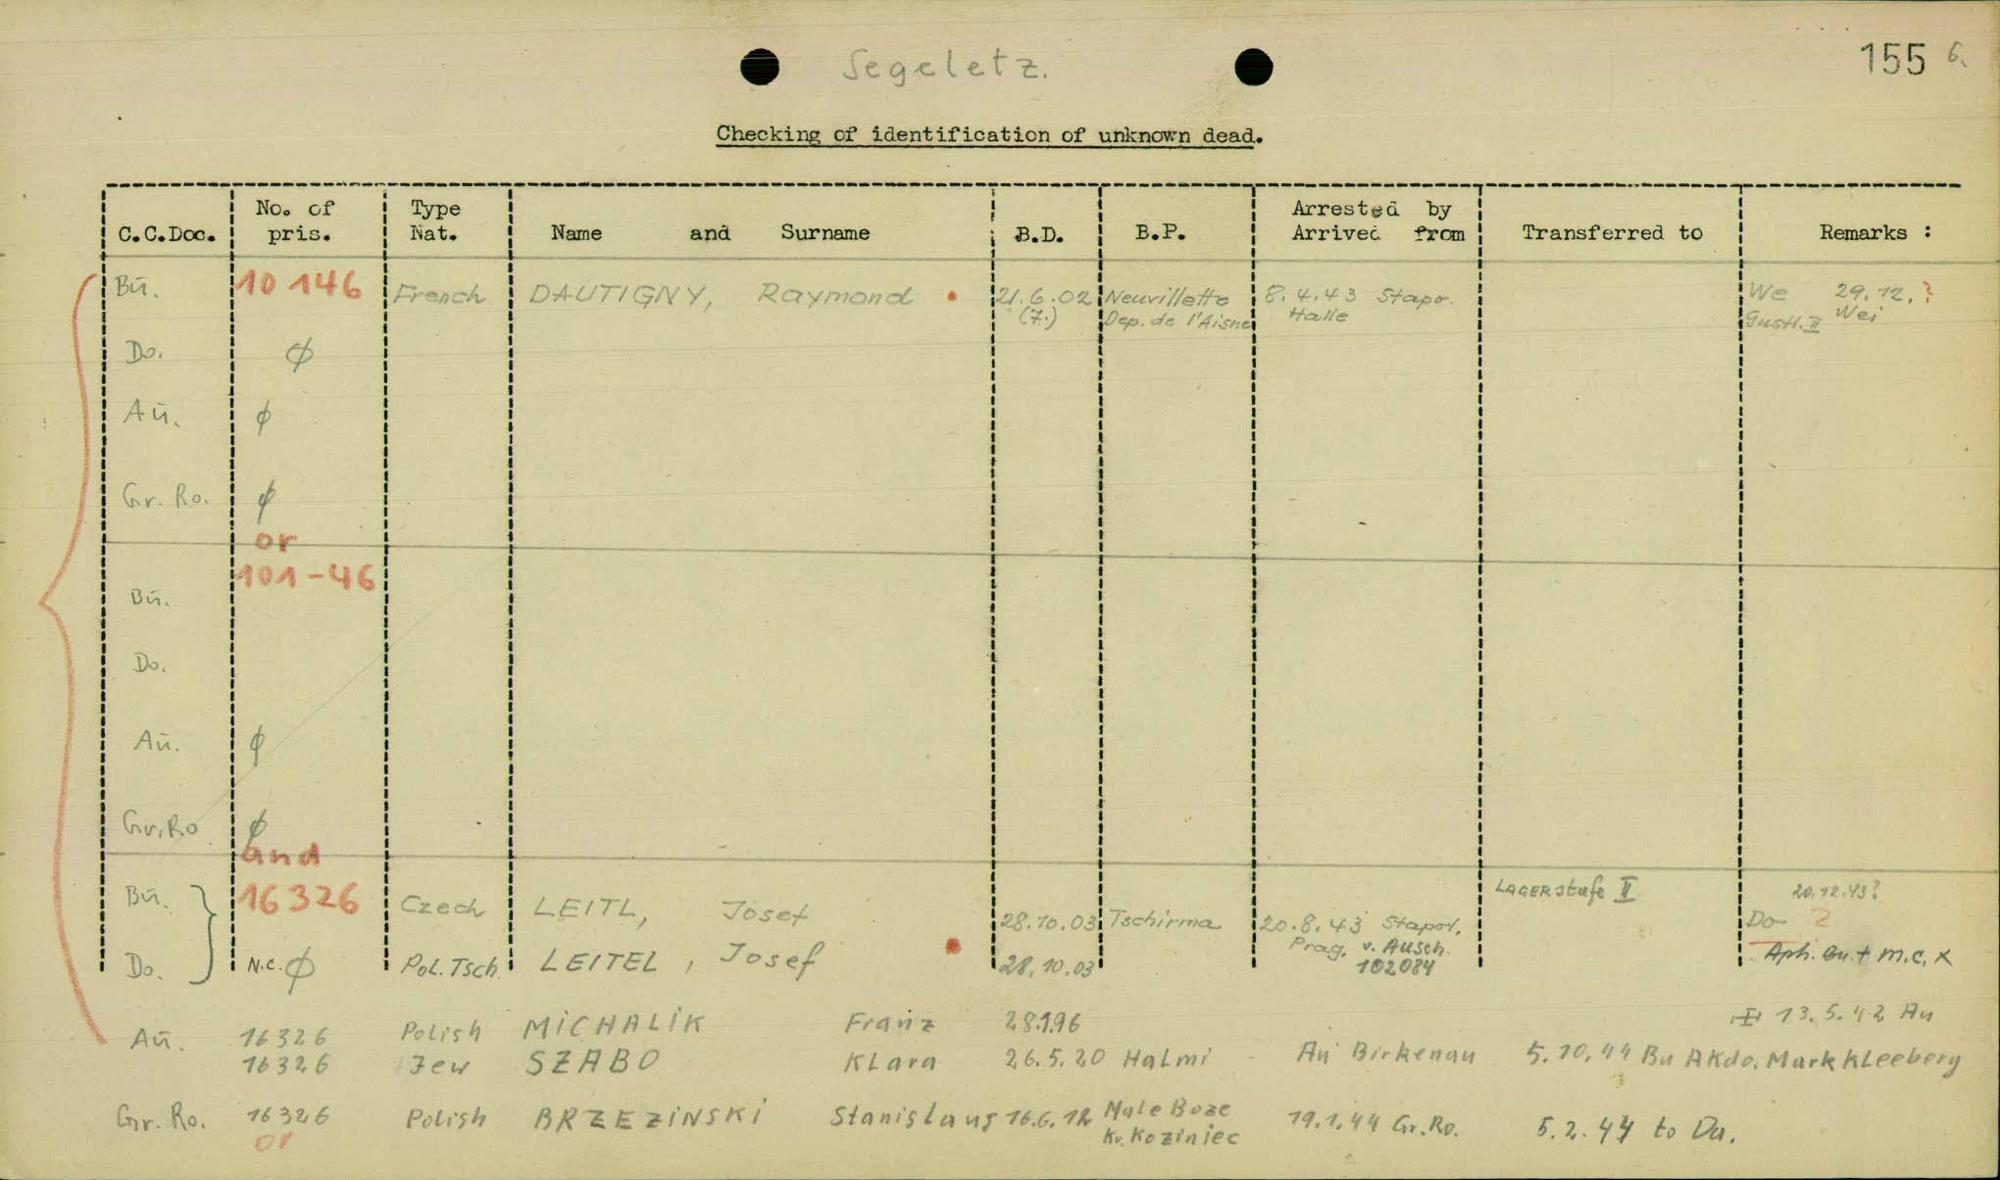 Segeletz.
155 6.
Checking of identification of unknown dead.
C.C.Doc. No. of pris. Type Nat. Name and Surname B.D. B.P. Arrested by Arrived from Transferred to Remarks :
Bū. 10 146 French DAUTIGNY, Raymond • 21.6.02 Neuvillette 8.4.43 Stapo. We 29.12.?
(7.) Dep. de l'Aisne Halle Gustl. II Wei
Do. ϕ
Aū. ϕ
Gr. Ro. ϕ
or
101-46
Bū.
Do.
Aū. ϕ
Gr. Ro ϕ
and
Bū. 16326 Czech LEITL, Josef 28.10.03 Tschirma 20.8.43 Stapol. LAGERstufe II 20.12.43?
Prag. v. Ausch. Do 2
Do. N.C. ϕ Pol. Tsch. LEITEL, Josef • 28.10.03 102084 Aph. Bu. + M.C. X
Aū. 16326 Polish MICHALIK Franz 28.1.96 13.5.42 Au
16326 Jew SZABO Klara 26.5.20 Halmi - Au Birkenau 5.10.44 Bu AKdo. Markkleeberg
Gr. Ro. 16326 Polish BRZEZINSKI Stanislaus 16.6.12 Male Boze 19.1.44 Gr. Ro. 5.2.44 to Da.
Kr. Koziniec
or